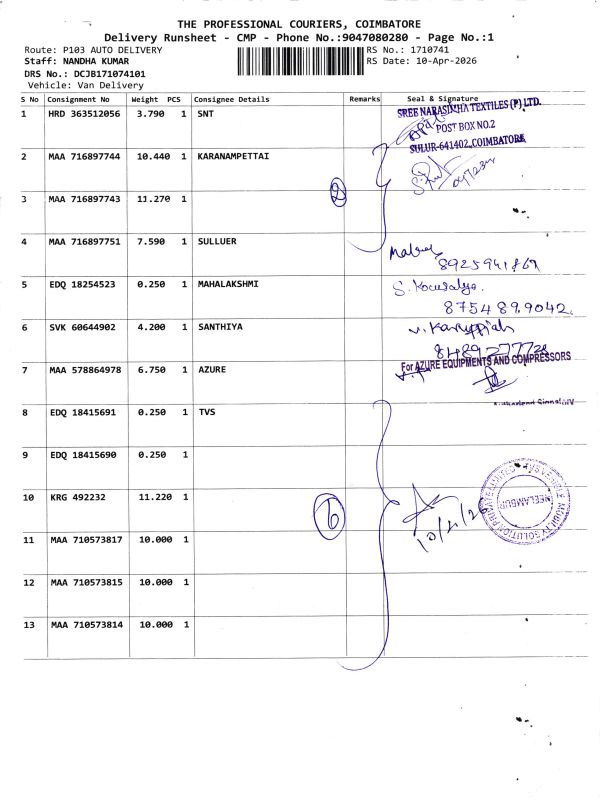 THE PROFESSIONAL COURIERS, COIMBATORE
Delivery Runsheet - CMP - Phone No.:9047080280 - Page No.:1
Route: P103 AUTO DELIVERY RS No.: 1710741
Staff: NANDHA KUMAR RS Date: 10-Apr-2026
DRS No.: DCJB171074101
Vehicle: Van Delivery
S No Consignment No Weight PCS Consignee Details Remarks Seal & Signature
1 HRD 363512056 3.790 1 SNT
SREE NARASIMHA TEXTILES (P) LTD.
POST BOX NO.2
SULUR-641402, COIMBATORE
2 MAA 716897744 10.440 1 KARANAMPETTAI
3 MAA 716897743 11.270 1
2
4 MAA 716897751 7.590 1 SULLUER
5 EDQ 18254523 0.250 1 MAHALAKSHMI
S. Kowsalya.
875489.9042.
6 SVK 60644902 4.200 1 SANTHIYA
7 MAA 578864978 6.750 1 AZURE
For AZURE EQUIPMENTS AND COMPRESSORS
8 EDQ 18415691 0.250 1 TVS
9 EDQ 18415690 0.250 1
10 KRG 492232 11.220 1
6
NEELAMBUR
11 MAA 710573817 10.000 1
12 MAA 710573815 10.000 1
13 MAA 710573814 10.000 1